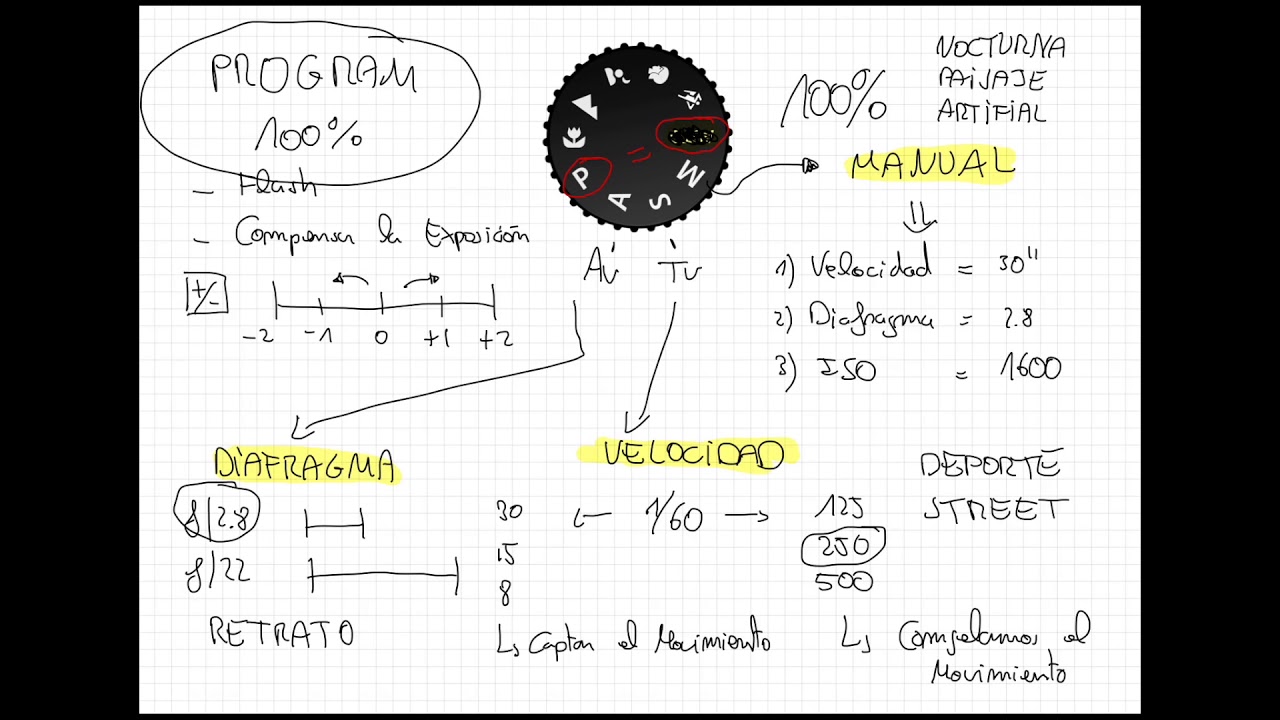 PROGRAM
100%
- Flash
- Compensar la Exposición
+/-
-2 -1 0 +1 +2
P A S M
=
Av Tv
100%
NOCTURNA
PAISAJE
ARTIFIAL
MANUAL
1) Velocidad = 30"
2) Diafragma = 2.8
3) ISO = 1600
DIAFRAGMA
f/2.8
f/22
RETRATO
VELOCIDAD
30 ← 1/60 → 125
15 250
8 500
↳ Captan el Movimiento
DEPORTE
STREET
↳ Congelamos el
Movimiento